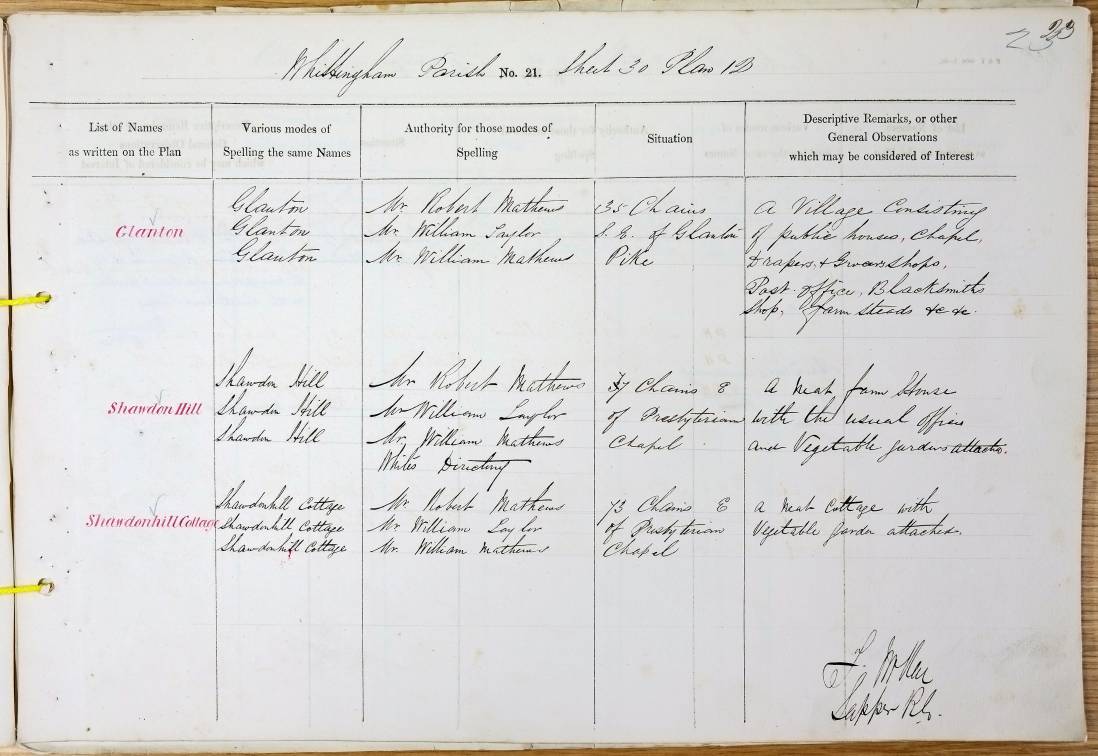 23
Whittingham Parish No. 21. Sheet 30 Plan 12
List of Names
as written on the Plan
Various modes of
Spelling the same Names
Authority for those modes of
Spelling
Situation
Descriptive Remarks, or other
General Observations
which may be considered of Interest
Glanton
Glanton
Glanton
Glanton
Mr. Robert Mathews
Mr. William Taylor
Mr. William Mathews
35 Chains
S. E. of Glanton
Pike
A Village Consisting
of public houses, Chapel,
Drapers, & Grocers shops,
Post office, Blacksmiths
Shop, farm steads &c &c.
Shawdon Hill
Shawdon Hill
Shawdon Hill
Shawdon Hill
Mr Robert Mathews
Mr William Taylor
Mr. William Mathews
White's Directory
Chains E
of Presbyterian
Chapel
A Neat farm House
with the usual offices
and Vegetable gardens attached.
Shawdonhill Cottage
Shawdonhill Cottage
Shawdonhill Cottage
Shawdonhill Cottage
Mr. Robert Mathews
Mr. William Taylor
Mr. William Mathews
73 Chains E
of Presbyterian
Chapel
A Neat Cottage with
Vegetable garden attached.
Sapper R.E.